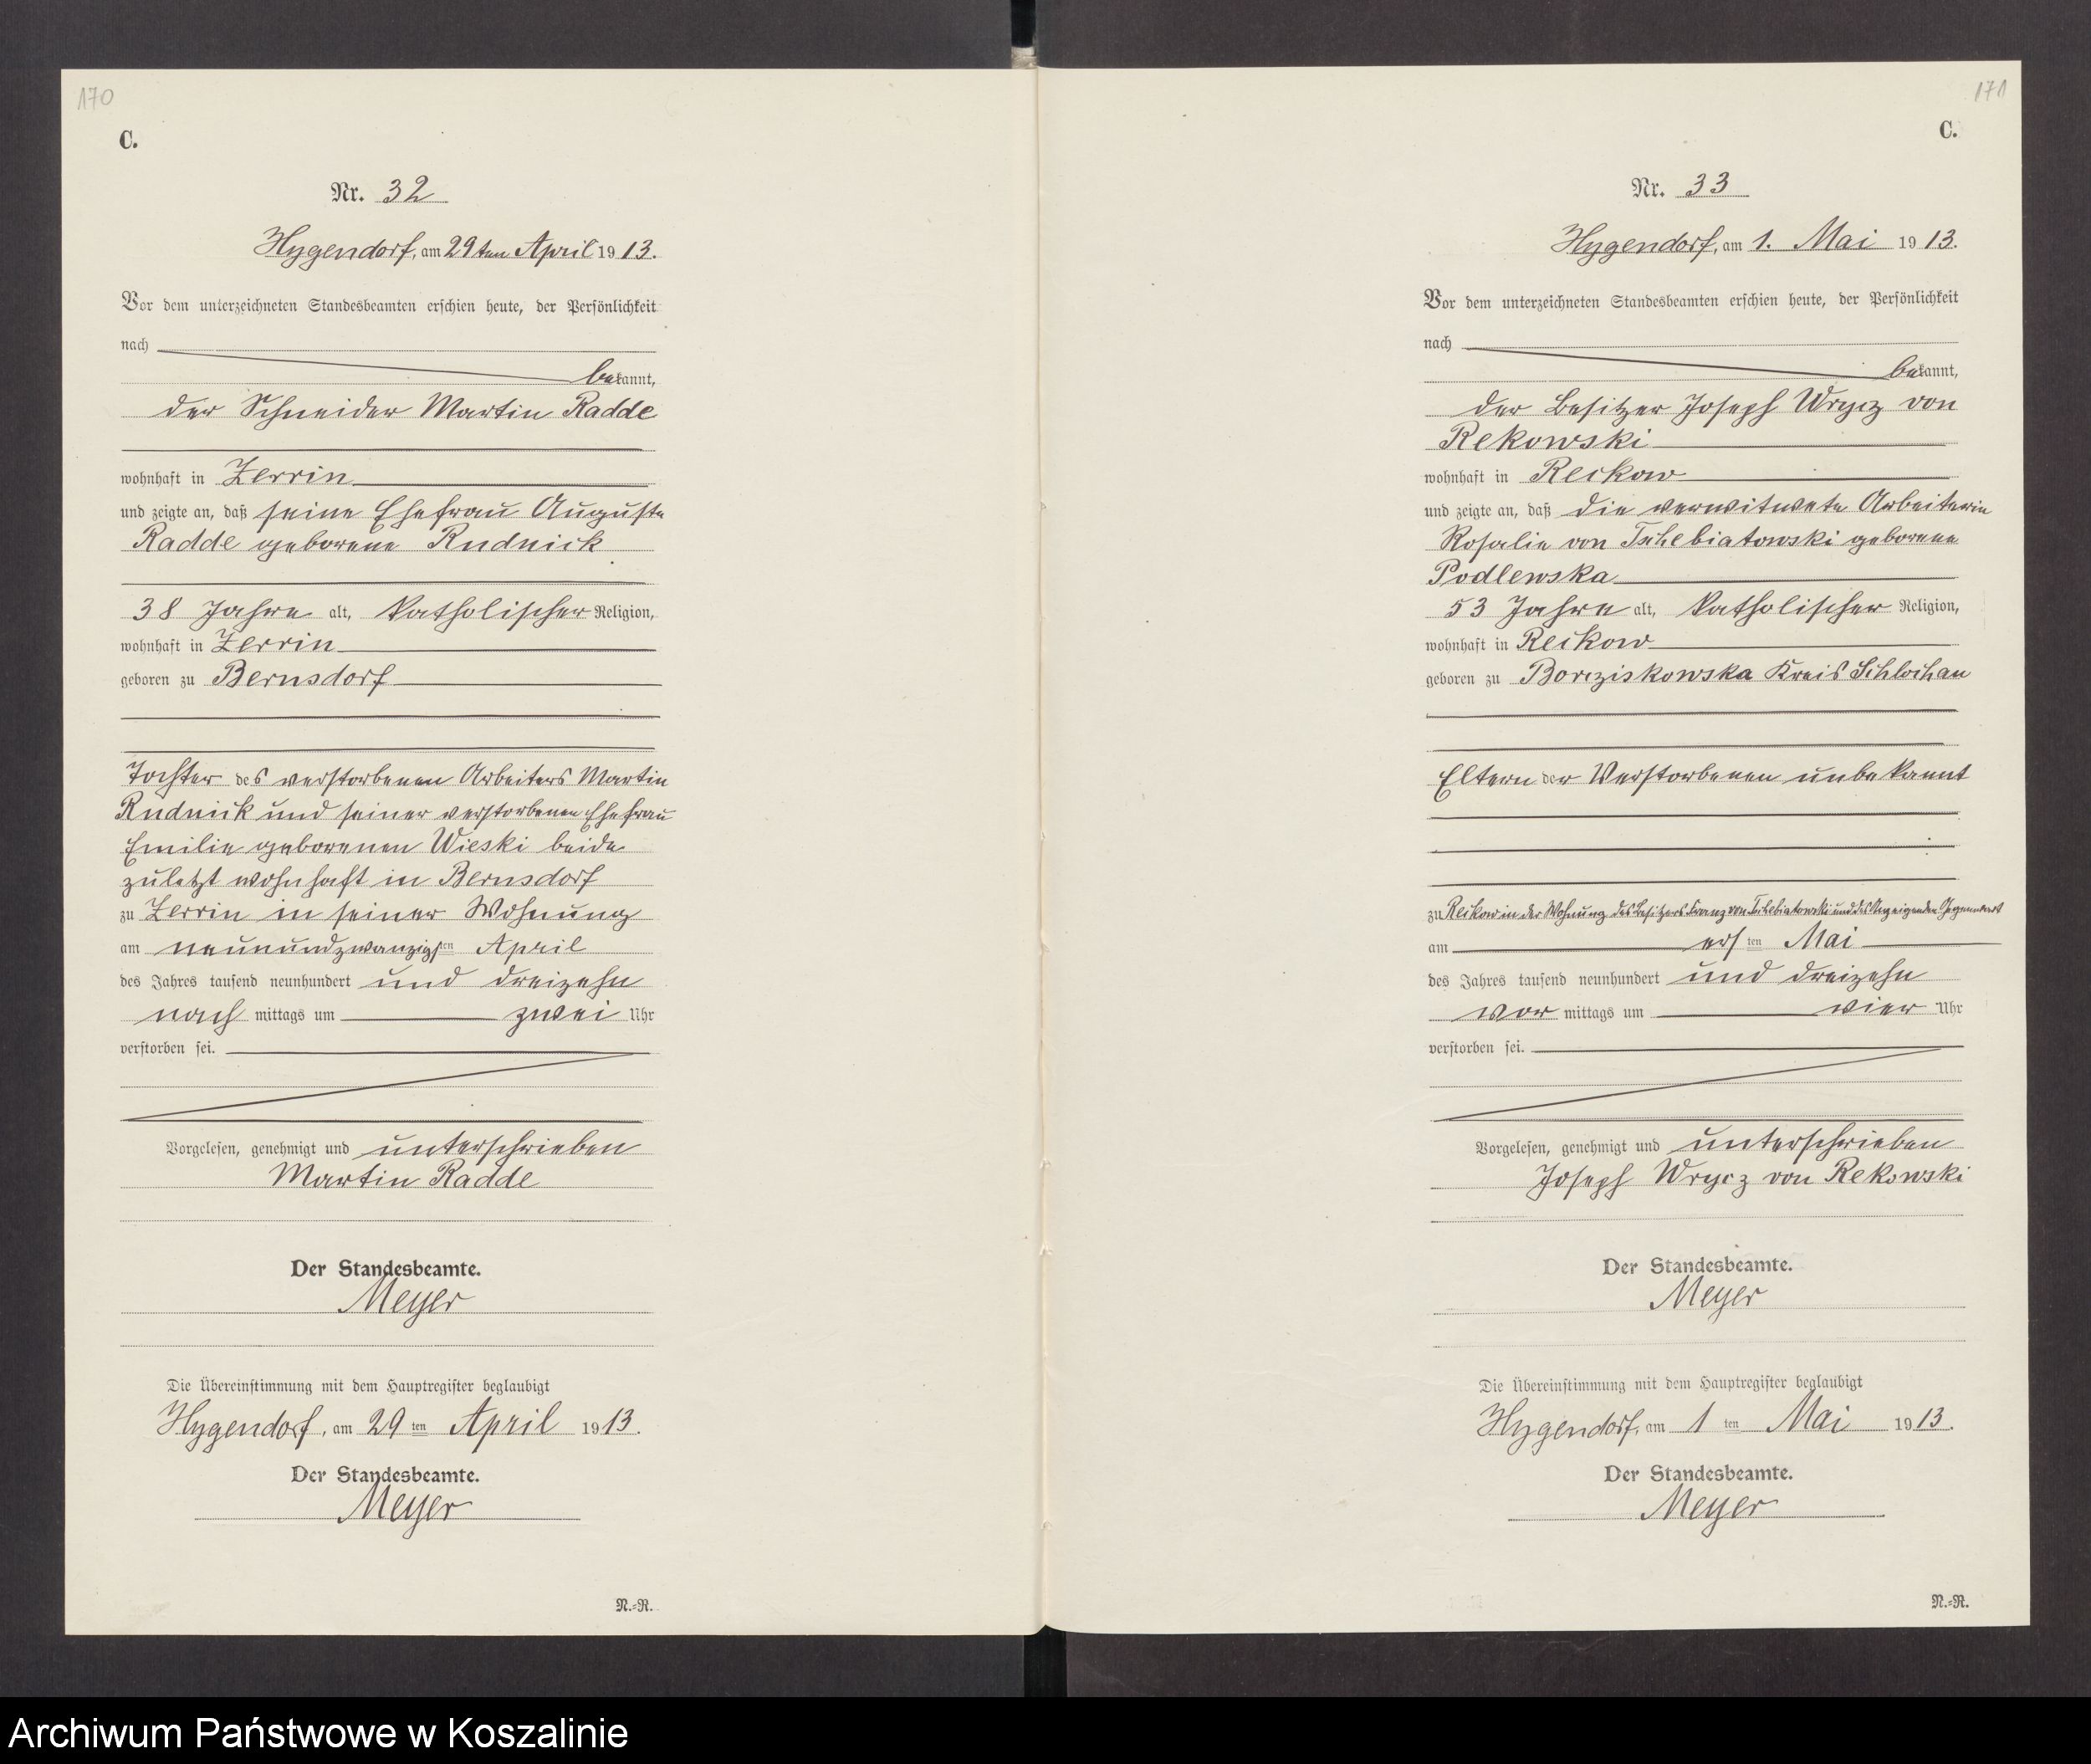 170
C.
Nr. 32
Hygendorf, am 29ten April 1913.
Vor dem unterzeichneten Standesbeamten erschien heute, der Persönlichkeit
nach
bekannt,
der Schneider Martin Radde
wohnhaft in Zerrin
und zeigte an, daß seine Ehefrau Auguste
Radde geborene Rudnick
38 Jahre alt, katholischer Religion,
wohnhaft in Zerrin
geboren zu Bernsdorf
Tochter des verstorbenen Arbeiters Martin
Rudnick und seiner verstorbenen Ehefrau
Emilie geborenen Wieski beide
zuletzt wohnhaft in Bernsdorf
zu Zerrin in seiner Wohnung
am neunundzwanzigsten April
des Jahres tausend neunhundert und dreizehn
nach mittags um zwei Uhr
verstorben sei.
Vorgelesen, genehmigt und unterschrieben
Martin Radde
Der Standesbeamte.
Meyer
Die Übereinstimmung mit dem Hauptregister beglaubigt
Hygendorf, am 29 ten April 1913.
Der Standesbeamte.
Meyer
N.-R.
171
C.
Nr. 33
Hygendorf, am 1. Mai 1913.
Vor dem unterzeichneten Standesbeamten erschien heute, der Persönlichkeit
nach
bekannt,
der Besitzer Joseph Wrycz von
Rekowski
wohnhaft in Reckow
und zeigte an, daß die verwitwete Arbeiterin
Rosalie von Tschebiatowski geborene
Podlewska
53 Jahre alt, katholischer Religion,
wohnhaft in Reckow
geboren zu Borcziskowska Kreis Schlochau
Eltern der Verstorbenen unbekannt
zu Reckow in der Wohnung des Besitzers Franz von Tschebiatowski und des Anzeigenden Gegenwart
am ersten Mai
des Jahres tausend neunhundert und dreizehn
vor mittags um vier Uhr
verstorben sei.
Vorgelesen, genehmigt und unterschrieben
Joseph Wrycz von Rekowski
Der Standesbeamte.
Meyer
Die Übereinstimmung mit dem Hauptregister beglaubigt
Hygendorf, am 1 ten Mai 1913.
Der Standesbeamte.
Meyer
N.-R.
Archiwum Państwowe w Koszalinie